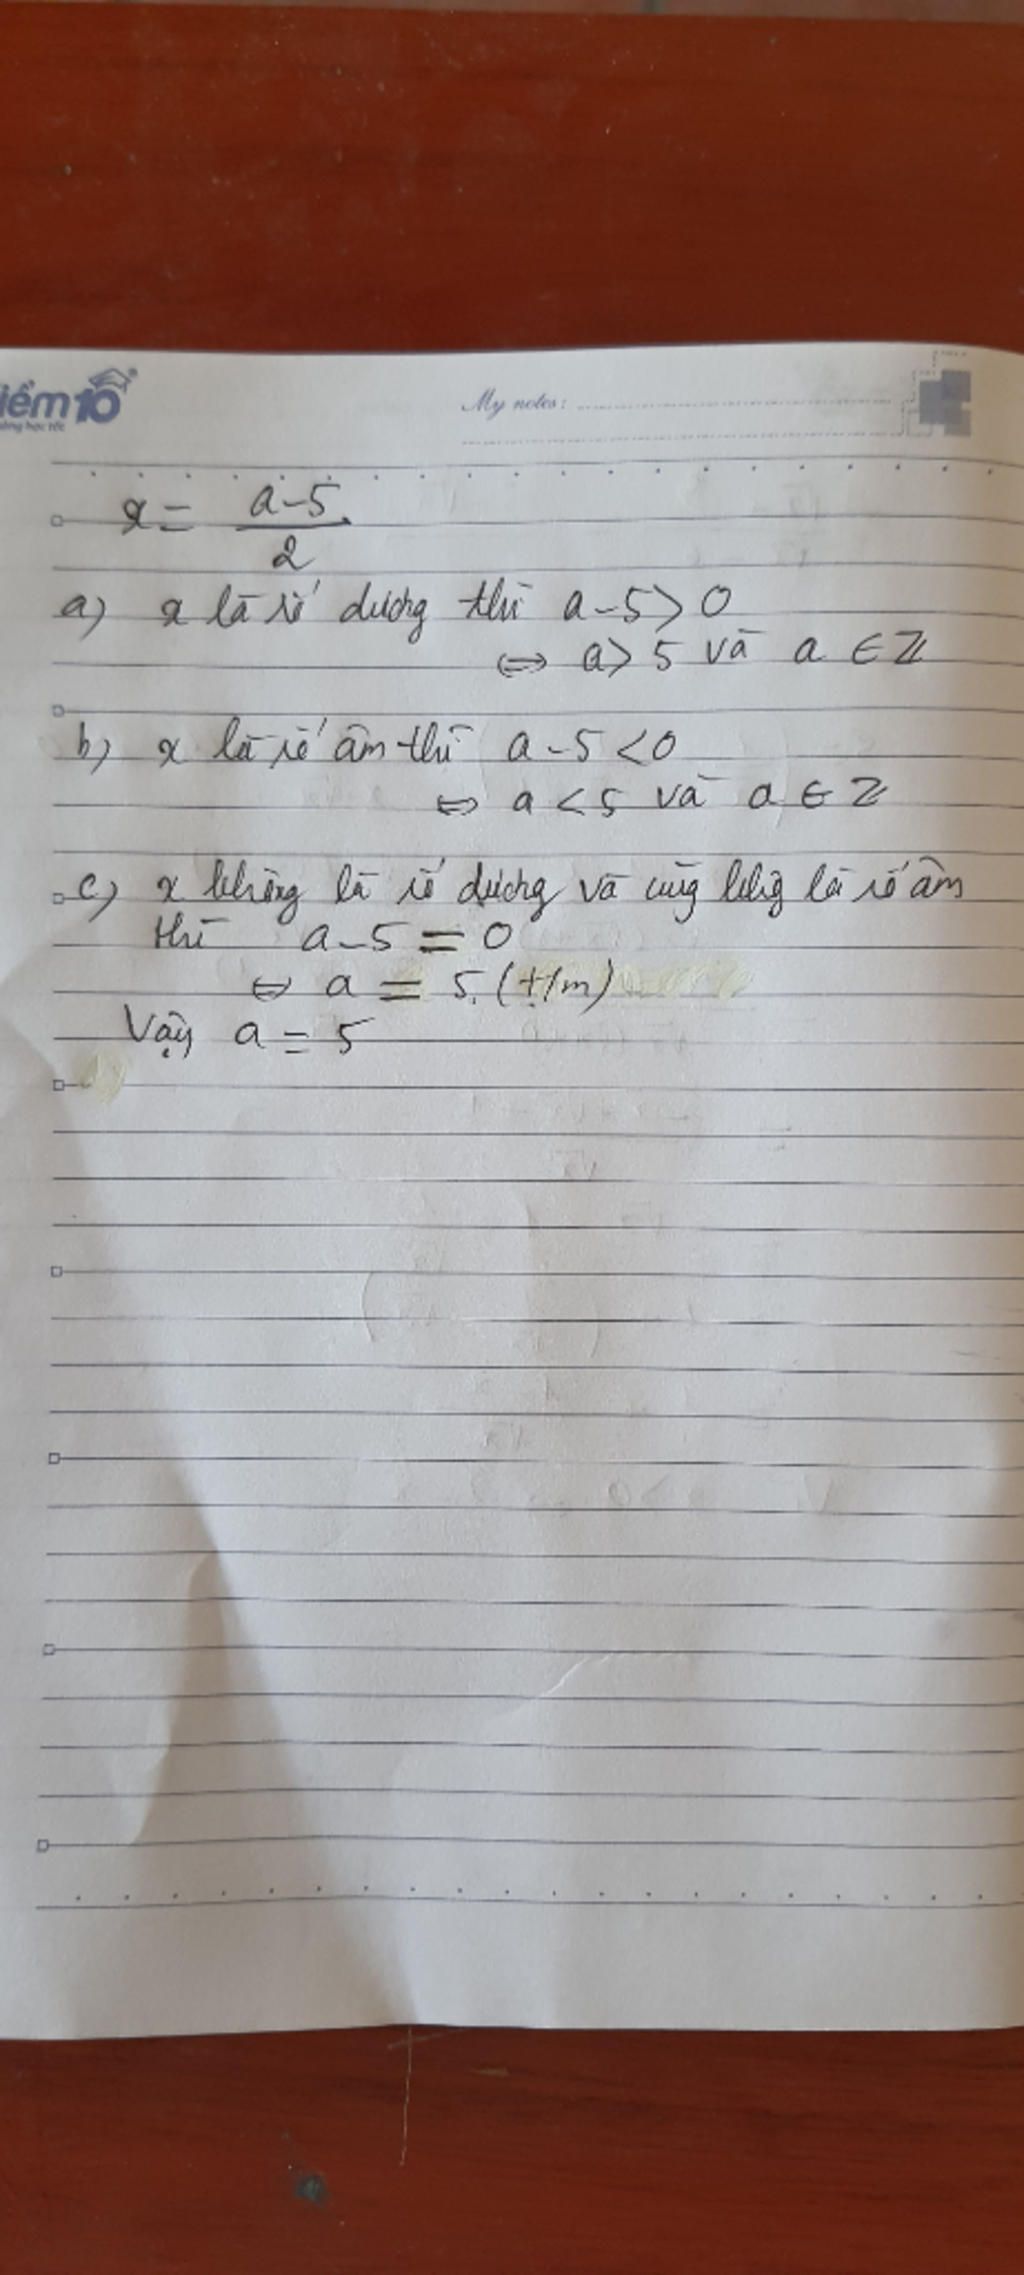 iểm10
My notes:
x = a-5 / 2
a) x là số dương thì a-5>0
⇔ a>5 và a ∈ Z
b) x là số âm thì a-5<0
⇔ a<5 và a ∈ Z
c) x không là số dương và cũng không là số âm
thì a-5=0
⇔ a = 5 (t/m)
Vậy a = 5